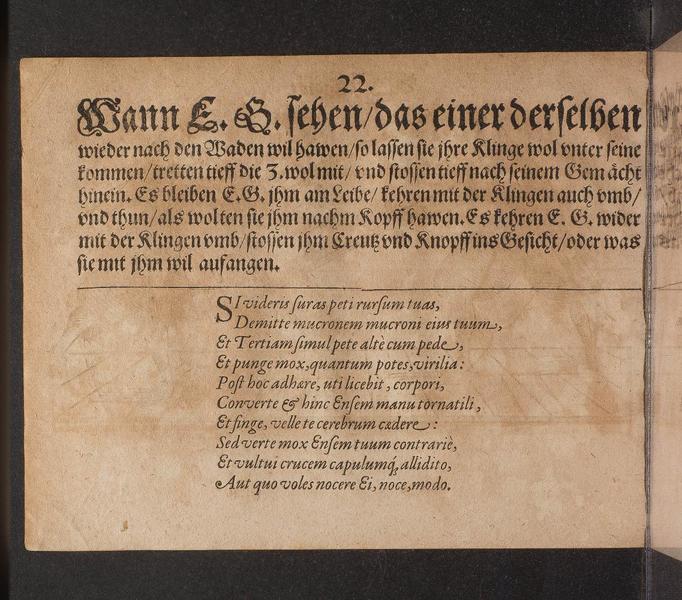 22.
Wann E. G. sehen/das einer derselben
wieder nach den Waden wil hawen/so lassen sie jhre Klinge wol vnter seine
kommen/tretten tieff die 3. wol mit/ vnd stossen tieff nach seinem Gemächt
hinein. Es bleiben E.G. jhm am Leibe/ kehren mit der Klingen auch vmb/
vnd thun/als wolten sie jhm nachm Kopff hawen. Es kehren E. G. wider
mit der Klingen vmb/stossen jhm Creutz vnd Knopff ins Gesicht/oder was
sie mit jhm wil aufangen.
SI videris suras peti rursum tuas,
Demitte mucronem mucroni eius tuum,
Et Tertiam simul pete altè cum pede,
Et punge mox, quantum potes, virilia:
Post hoc adhære, uti licebit, corpori,
Converte & hinc Ensem manu tornatili,
Et finge, velle te cerebrum cædere:
Sed verte mox Ensem tuum contrariè,
Et vultui crucem capulumq́; allidito,
Aut quo voles nocere Ei, noce, modo.